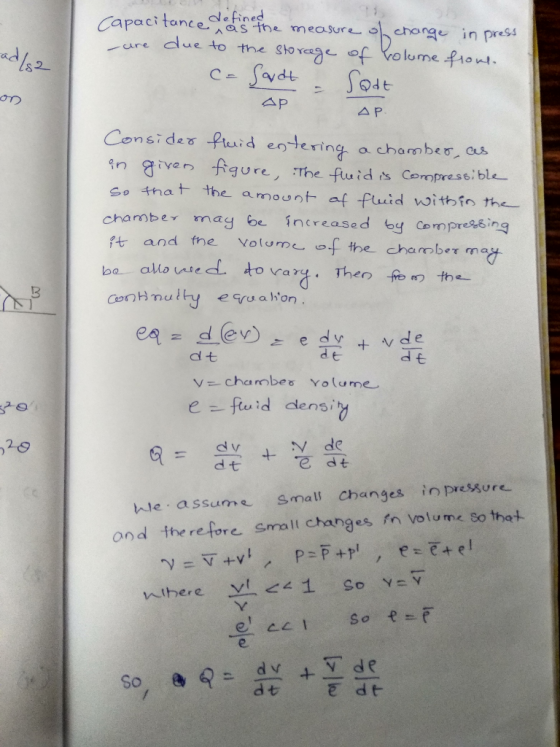 ad/s2
on
B
s²θ
n²θ
Capacitance defined as the measure of change in press
-ure due to the storage of volume flow.
C = ∫qdt / ΔP = ∫Qdt / ΔP
Consider fluid entering a chamber, as
in given figure, The fluid is compressible
so that the amount of fluid within the
chamber may be increased by compressing
it and the volume of the chamber may
be allowed to vary. Then from the
continuity equation.
eQ = d/dt (ev) = e dv/dt + v de/dt
v = chamber volume
e = fluid density
Q = dv/dt + v/e de/dt
We assume small changes in pressure
and therefore small changes in volume so that
v = v̄ + v' , P = P̄ + P' , e = ē + e'
where v'/v << 1 so v = v̄
e'/e << 1 so e = ē
so, Q = dv/dt + v̄/ē de/dt